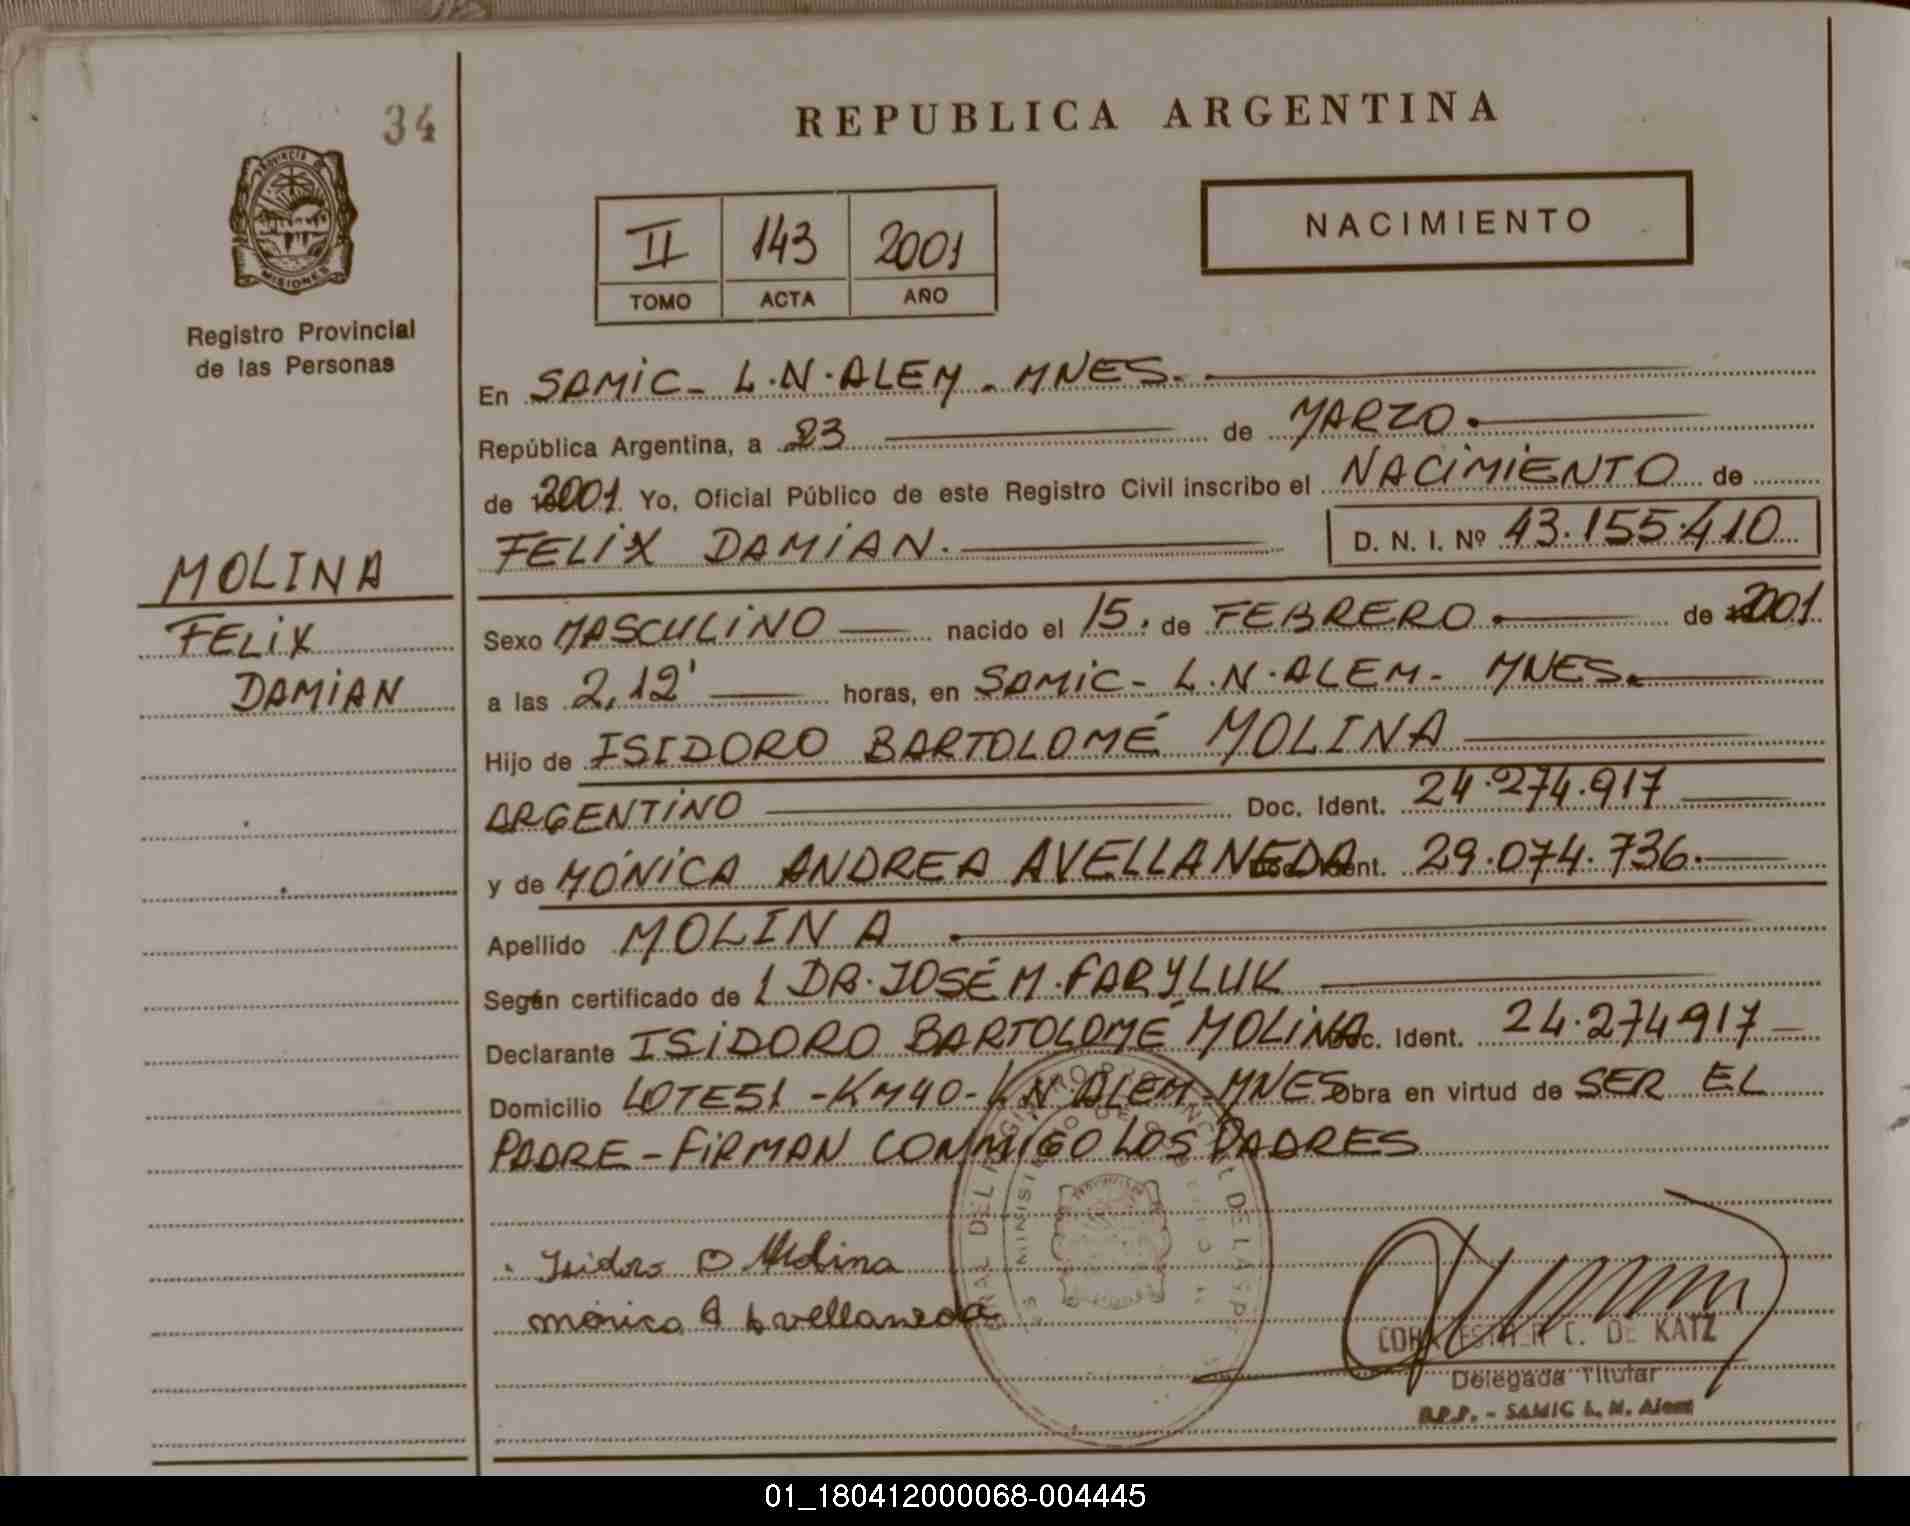 34
REPUBLICA ARGENTINA
PROVINCIA DE
MISIONES
Registro Provincial
de las Personas
II 143 2001
TOMO ACTA AÑO
NACIMIENTO
En SAMIC - L.N. ALEM - MNES.
República Argentina, a 23 de MARZO.
de 2001 Yo, Oficial Público de este Registro Civil inscribo el NACIMIENTO de
FELIX DAMIAN. D. N. I. Nº 43.155.410
MOLINA
FELIX
DAMIAN
Sexo MASCULINO nacido el 15. de FEBRERO de 2001
a las 2,12' horas, en SAMIC - L.N. ALEM - MNES.
Hijo de ISIDORO BARTOLOMÉ MOLINA
ARGENTINO Doc. Ident. 24.274.917
y de MÓNICA ANDREA AVELLANEDA Doc. Ident. 29.074.736.
Apellido MOLINA
Según certificado de 1 DR. JOSÉ M. FARYLUK
Declarante ISIDORO BARTOLOMÉ MOLINA Doc. Ident. 24.274917
Domicilio LOTE51 - KM40 - L.N. ALEM - MNES Obra en virtud de SER EL
PADRE - FIRMAN CONMIGO LOS PADRES
Isidoro B Molina
Mónica A Avellaneda
ESTHER C. DE KATZ
Delegada Titular
R.P.P. - SAMIC L. N. Alem
01_180412000068-004445